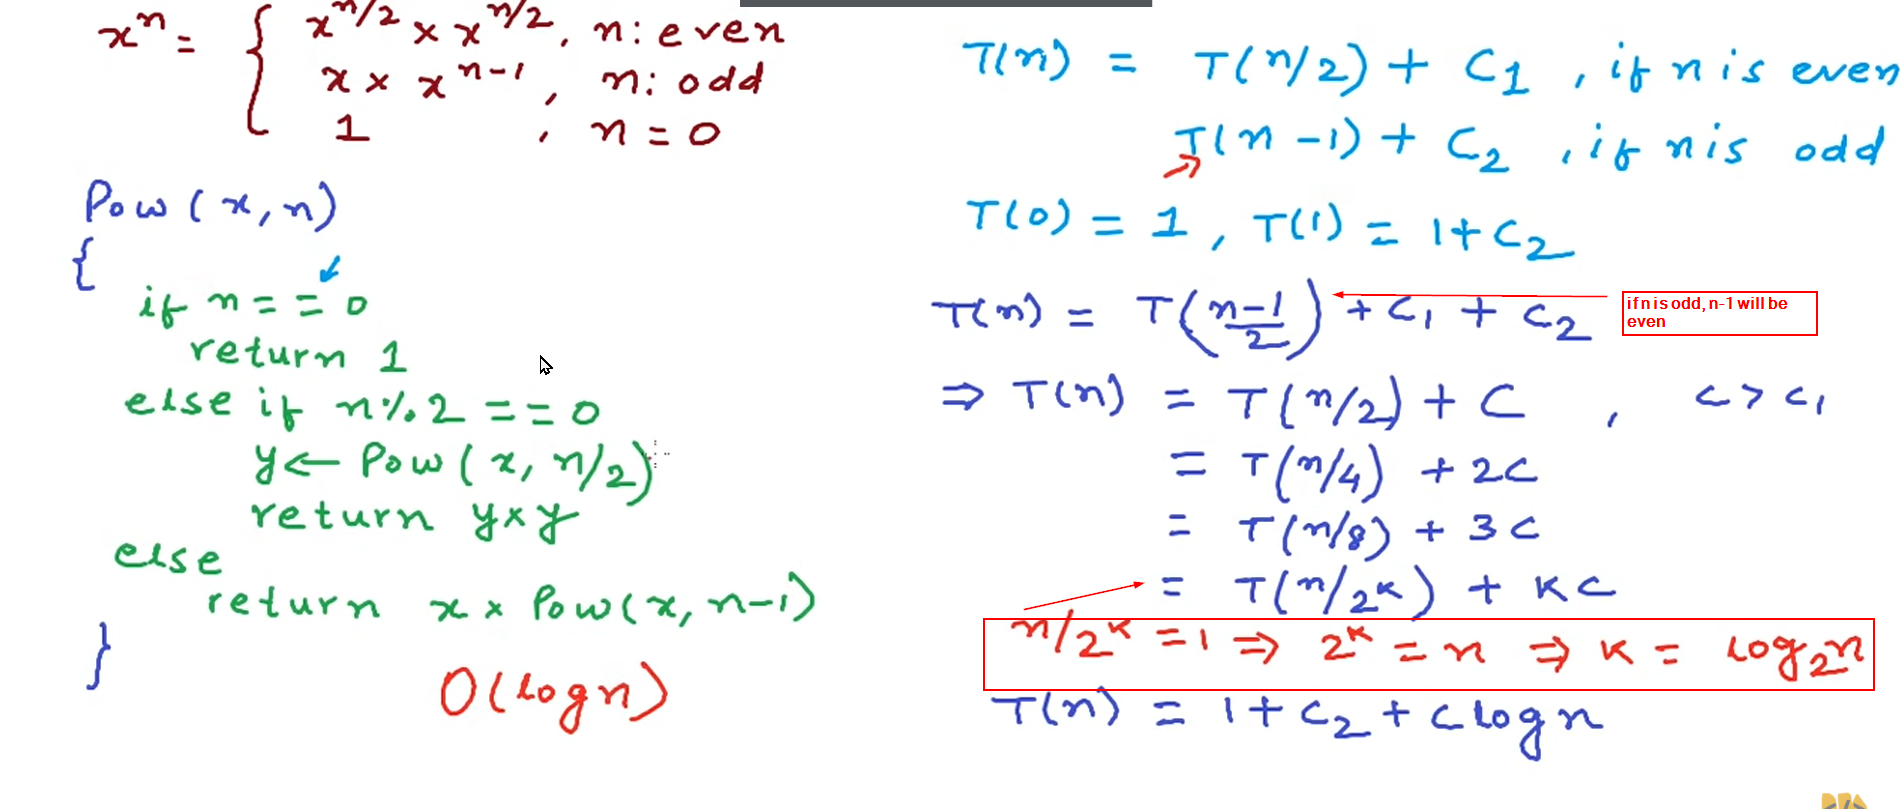 xⁿ = { x^(n/2) × x^(n/2), n: even
x × x^(n-1), n: odd
1, n = 0
Pow(x, n)
{
if n == 0
return 1
else if n % 2 == 0
y ← Pow(x, n/2)
return y × y
else
return x × Pow(x, n-1)
}
O(log n)
T(n) = T(n/2) + C1, if n is even
T(n-1) + C2, if n is odd
T(0) = 1, T(1) = 1 + C2
T(n) = T((n-1)/2) + C1 + C2
if n is odd, n-1 will be
even
⇒ T(n) = T(n/2) + C, C > C1
= T(n/4) + 2C
= T(n/8) + 3C
= T(n/2^k) + kC
n/2^k = 1 ⇒ 2^k = n ⇒ k = log₂n
T(n) = 1 + C2 + C log n